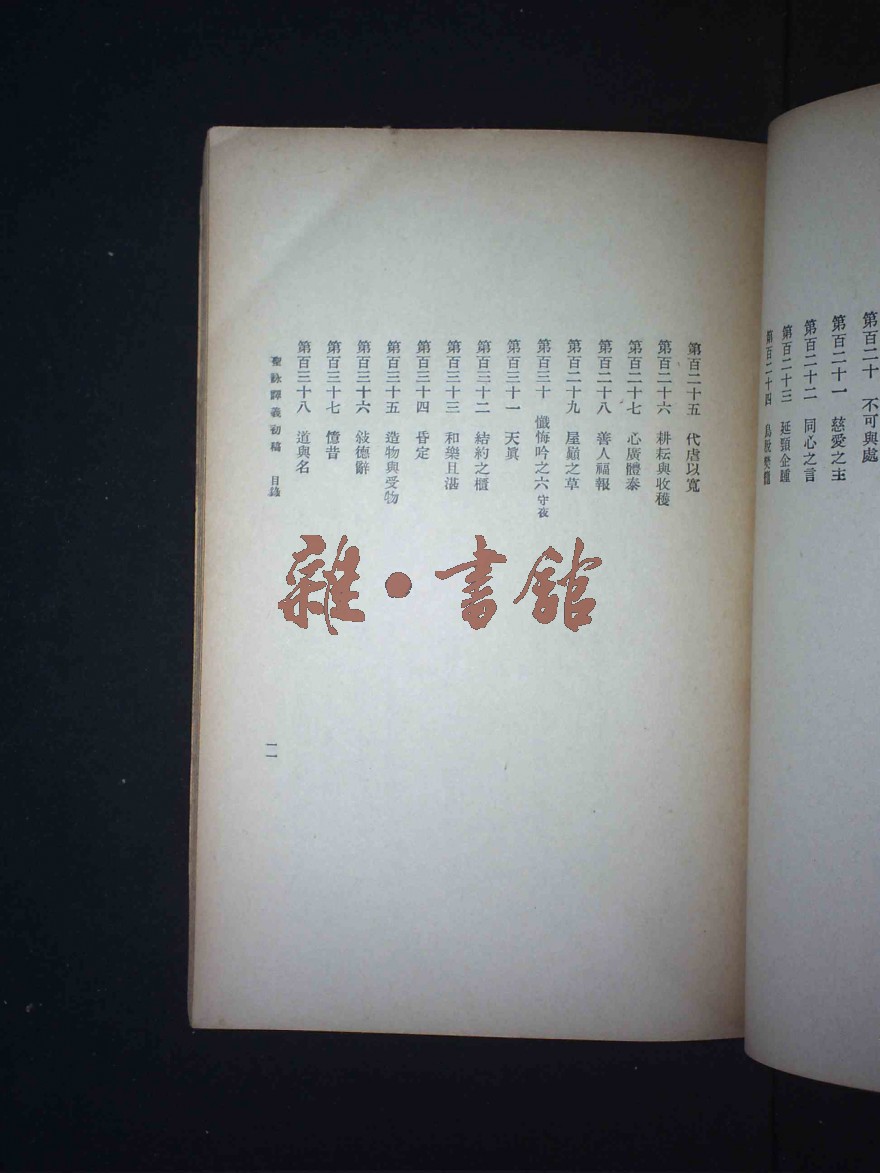 第百二十　不可與處
第百二十一　慈愛之主
第百二十二　同心之言
第百二十三　延頸企踵
第百二十四　鳥脫樊籠
第百二十五　代虐以寬
第百二十六　耕耘與收穫
第百二十七　心廣體泰
第百二十八　善人福報
第百二十九　屋巔之草
第百三十　懺悔吟之六 守夜
第百三十一　天眞
第百三十二　結約之櫃
第百三十三　和樂且湛
第百三十四　昏定
第百三十五　造物與受物
第百三十六　敍德辭
第百三十七　憶昔
第百三十八　道與名
聖詠譯義初稿　目錄
一一
雜·書館